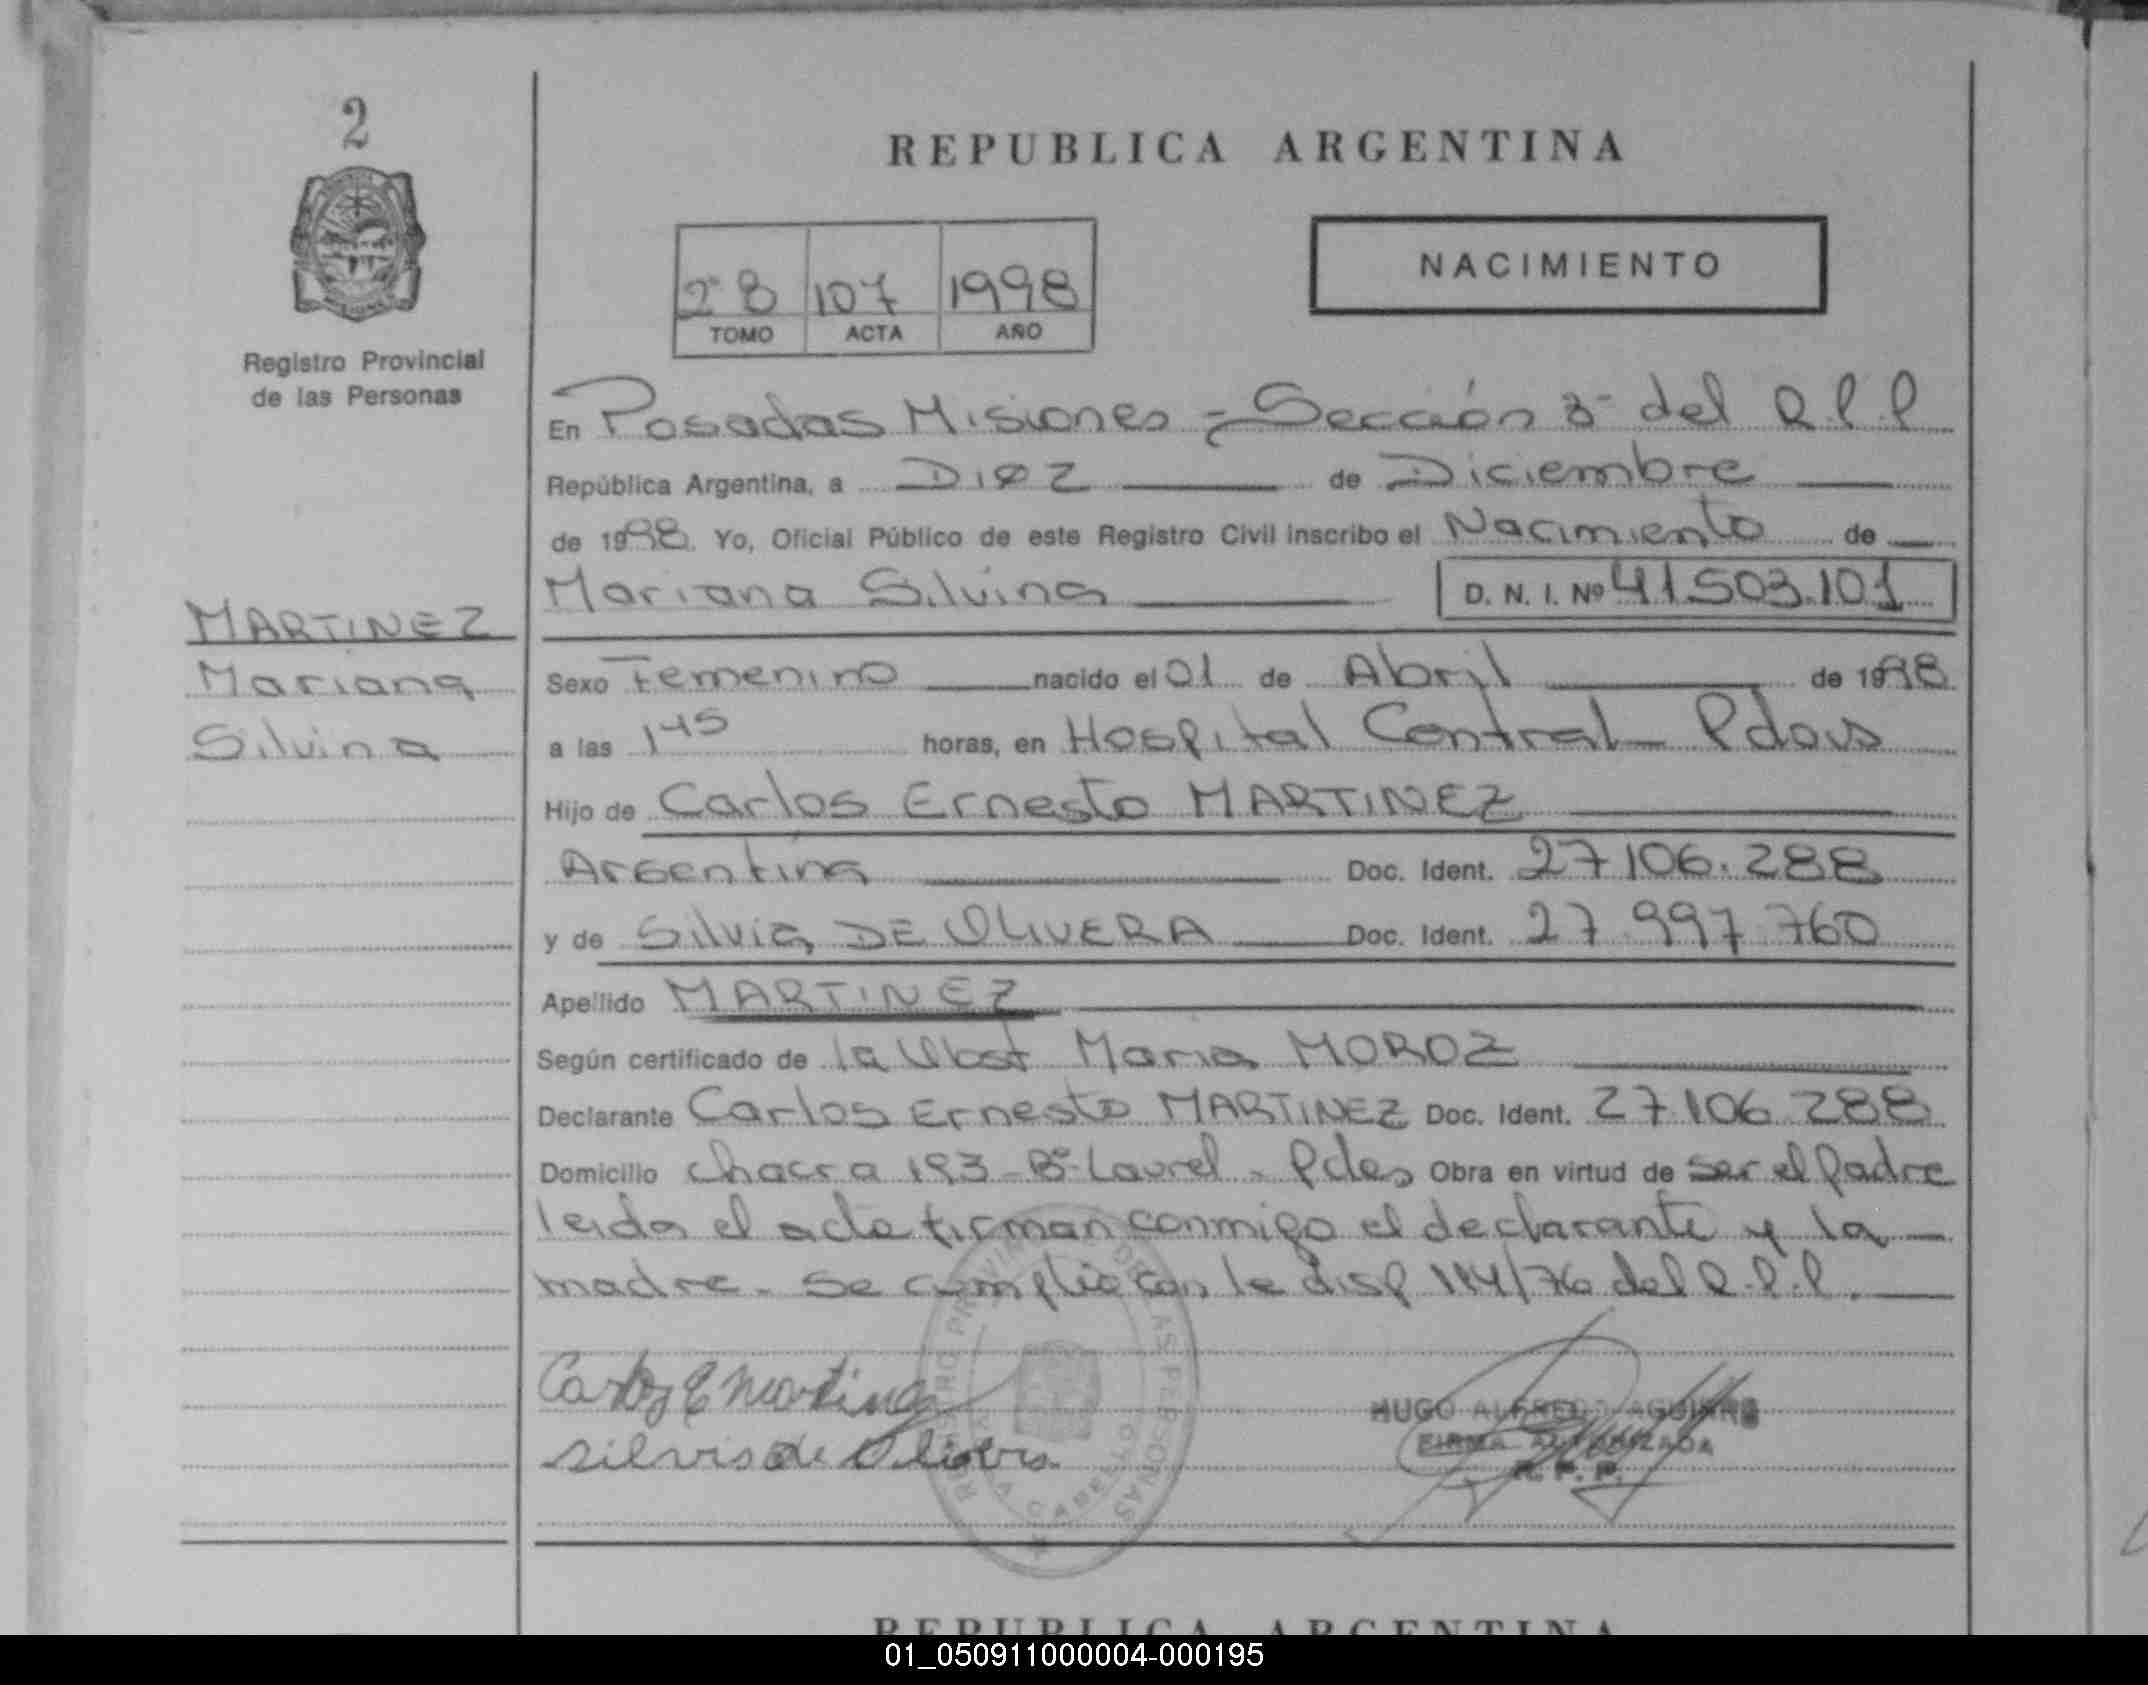 2
Registro Provincial
de las Personas
MARTINEZ
Mariana
Silvina
REPUBLICA ARGENTINA
2º 8 107 1998
TOMO ACTA AÑO
NACIMIENTO
En Posadas Misiones - Sección 3º del R.P.P
República Argentina, a Diez de Diciembre
de 1998. Yo, Oficial Público de este Registro Civil inscribo el Nacimiento de
Mariana Silvina D. N. I. Nº 41.503.101
Sexo Femenino nacido el 01 de Abril de 1998
a las 1 45 horas, en Hospital Central - Pdas
Hijo de Carlos Ernesto MARTINEZ
Argentina Doc. Ident. 27.106.288
y de Silvia DE OLIVERA Doc. Ident. 27.997.760
Apellido MARTINEZ
Según certificado de la Obst Maria MOROZ
Declarante Carlos Ernesto MARTINEZ Doc. Ident. 27.106.288
Domicilio chacra 193 - Bº Laurel - Pdas Obra en virtud de ser el Padre
leida el acta firman conmigo el declarante y la
madre. Se cumplio con la disp 114/76 del R.P.P.
Carlos E Martinez
Silvia de Olivera
REGISTRO PROVINCIAL DE LAS PERSONAS
HUGO ALFREDO AGUIRRE
FIRMA AUTORIZADA
R. P. P.
REPUBLICA ARGENTINA
01_050911000004-000195